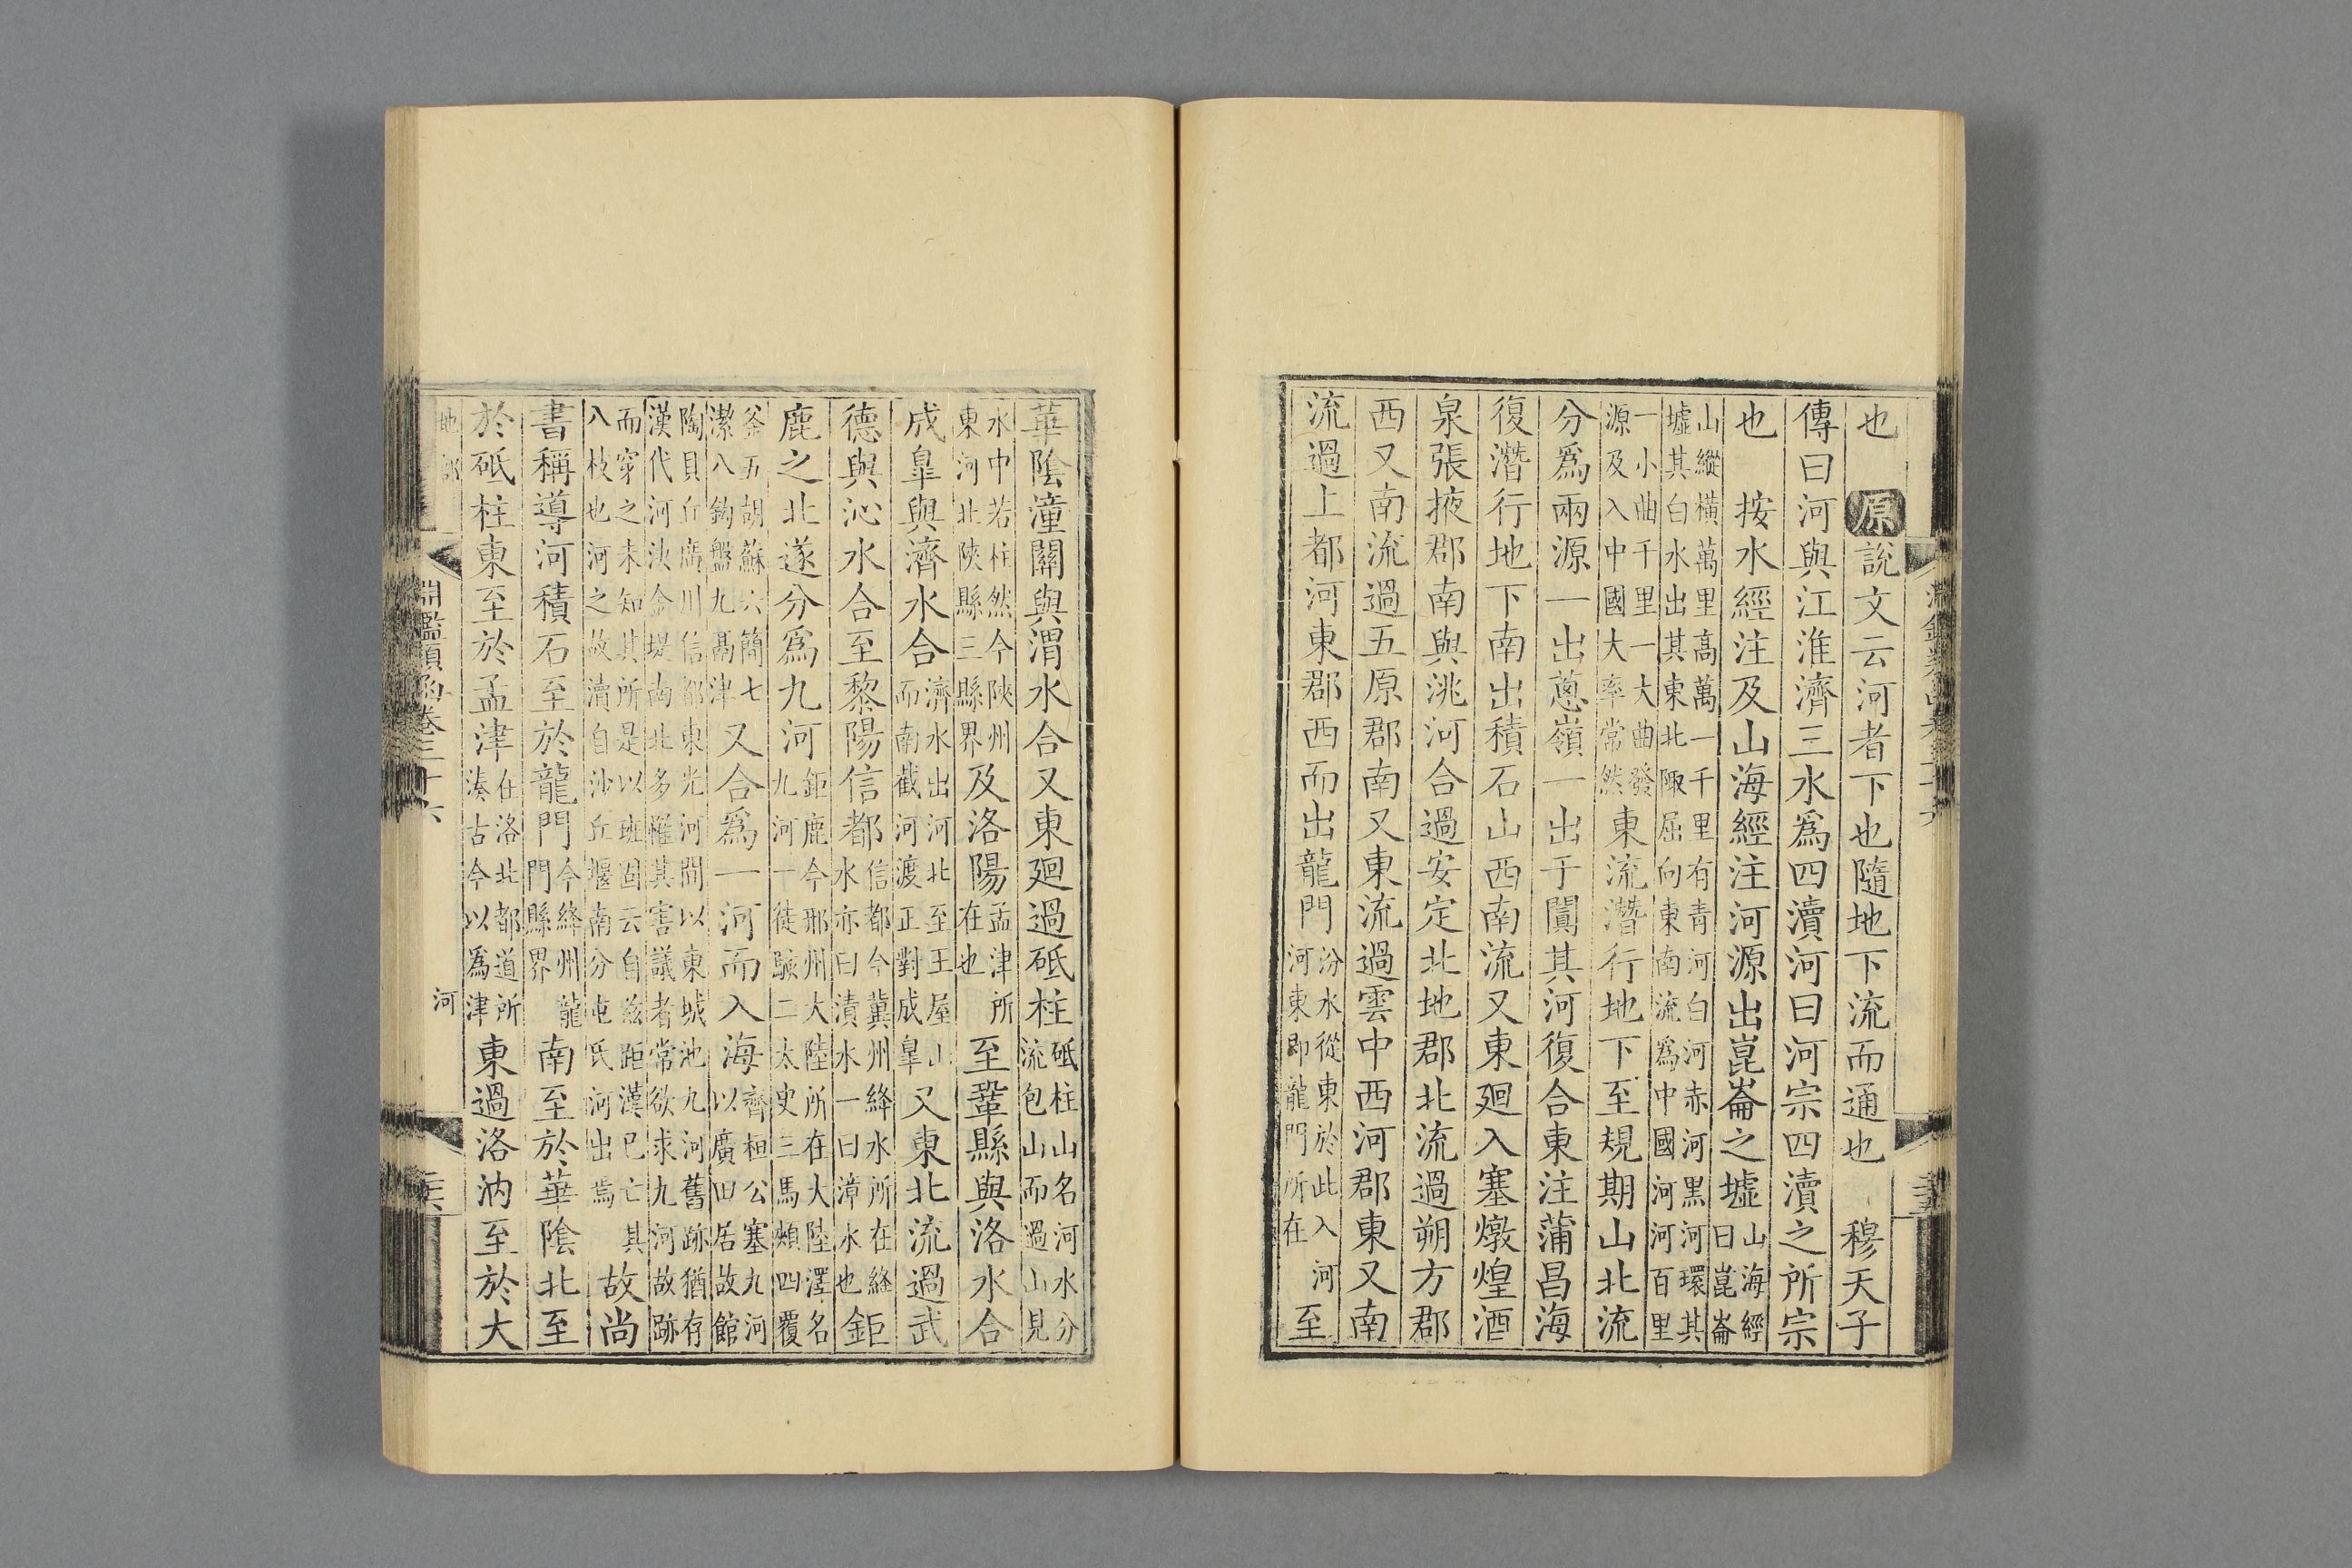 也　原說文云河者下也隨地下流而通也　穆天子
傳曰河與江淮濟三水爲四瀆河曰河宗四瀆之所宗
也　按水經注及山海經注河源出崑崙之墟山海經曰崑崙
山縱橫萬里高萬一千里有青河白河赤河黑河環其
墟其白水出其東北陬屈向東南流爲中國河河百里
一小曲千里一大曲發源及入中國大率常然東流潛行地下至規期山北流
分爲兩源一出蔥嶺一出于闐其河復合東注蒲昌海
復潛行地下南出積石山西南流又東廻入塞燉煌酒
泉張掖郡南與洮河合過安定北地郡北流過朔方郡
西又南流過五原郡南又東流過雲中西河郡東又南
流過上都河東郡西而出龍門汾水從東於此入河河東即龍門所在至
華陰潼關與渭水合又東廻過砥柱砥柱山名河水分流包山而過山見
水中若柱然今陝州東河北陝縣三縣界及洛陽孟津所在也至鞏縣與洛水合
成皐與濟水合濟水出河北至王屋山而南截河渡正對成皐又東北流過武
德與沁水合至黎陽信都信都今冀州絳水所在絳水亦曰漬水一曰漳水也鉅
鹿之北遂分爲九河鉅鹿今邢州大陸所在大陸澤名九河一徒駭二太史三馬頰四覆
釜五胡蘇六簡七潔八鉤盤九鬲津又合爲一河而入海齊桓公塞九河以廣田居故館
陶貝丘廣川信都東光河間以東城池九河舊跡猶存
漢代河決金堤南北多罹其害議者常欲求九河故跡
而穿之未知其所是以班固云自茲距漢已亡其八枝也河之故瀆自沙丘堰南分屯氏河出焉故尚
書稱導河積石至於龍門今絳州龍門縣界南至於華陰北至
於砥柱東至於孟津在洛北都道所湊古今以爲津東過洛汭至於大
淵鑑類函卷三十六
地部
河